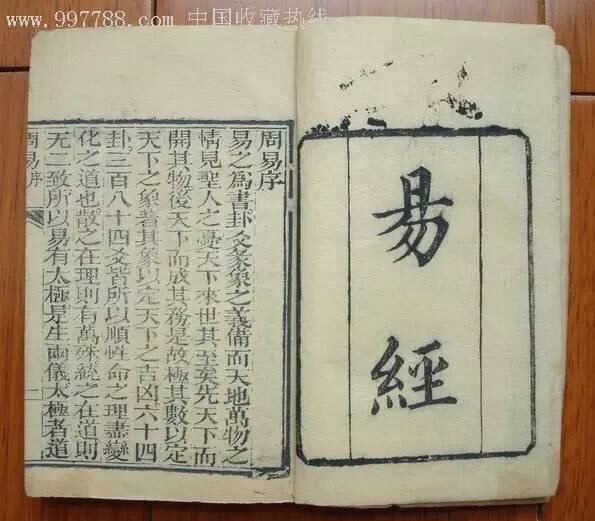 www.997788.com 中国收藏热线
易經
周易序
易之爲書卦爻彖象之義備而天地萬物之
情見聖人之憂天下來世其至矣先天下而
開其物後天下而成其務是故極其數以定
天下之象著其象以定天下之吉凶六十四
卦三百八十四爻皆所以順性命之理盡變
化之道也散之在理則有萬殊統之在道則
无二致所以易有太極是生兩儀太極者道
周易序